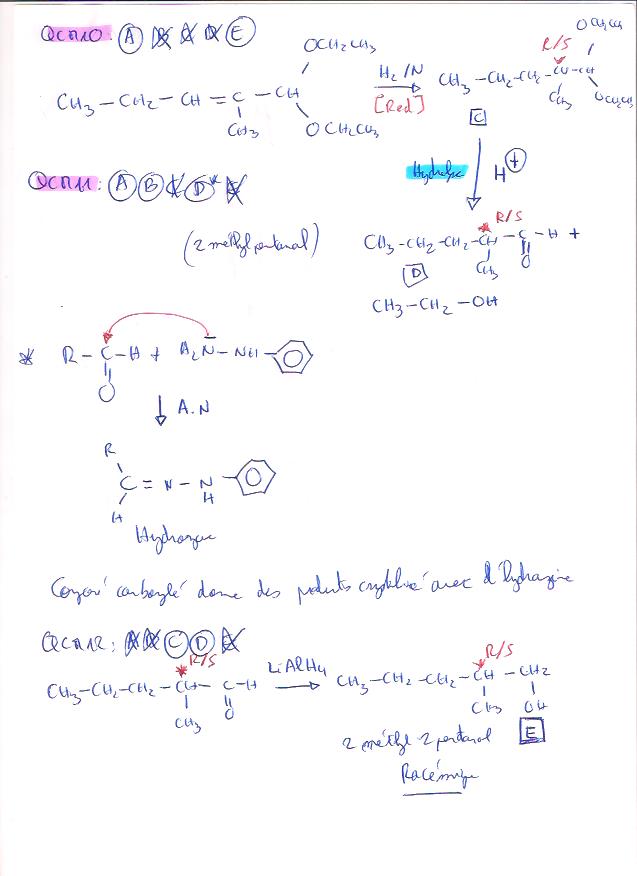 QCM10: A B C D E
OCH2CH3
CH3 – CH2 – CH = C – CH
CH3
OCH2CH3
H2/N
[Red]
R/S
OCH2CH3
CH3 – CH2 – CH2 – CH – CH
CH3
OCH2CH3
C
Hydrolyse H+
QCM11: A B C D* E
(2 méthyl pentanal)
R/S
CH3 – CH2 – CH2 – CH – C – H +
CH3
O
D
CH3 – CH2 – OH
* R – C – H + H2N – NH –
O
A.N
R
C = N – N –
H
H
Hydrazone
carbonylé donne des produits cristallisé avec l'hydrazine
QCM12: A B C D E
R/S
CH3 – CH2 – CH2 – CH – C – H
CH3
O
LiAlH4
R/S
CH3 – CH2 – CH2 – CH – CH2
CH3
OH
2 méthyl 2 pentanol
E
Racémique